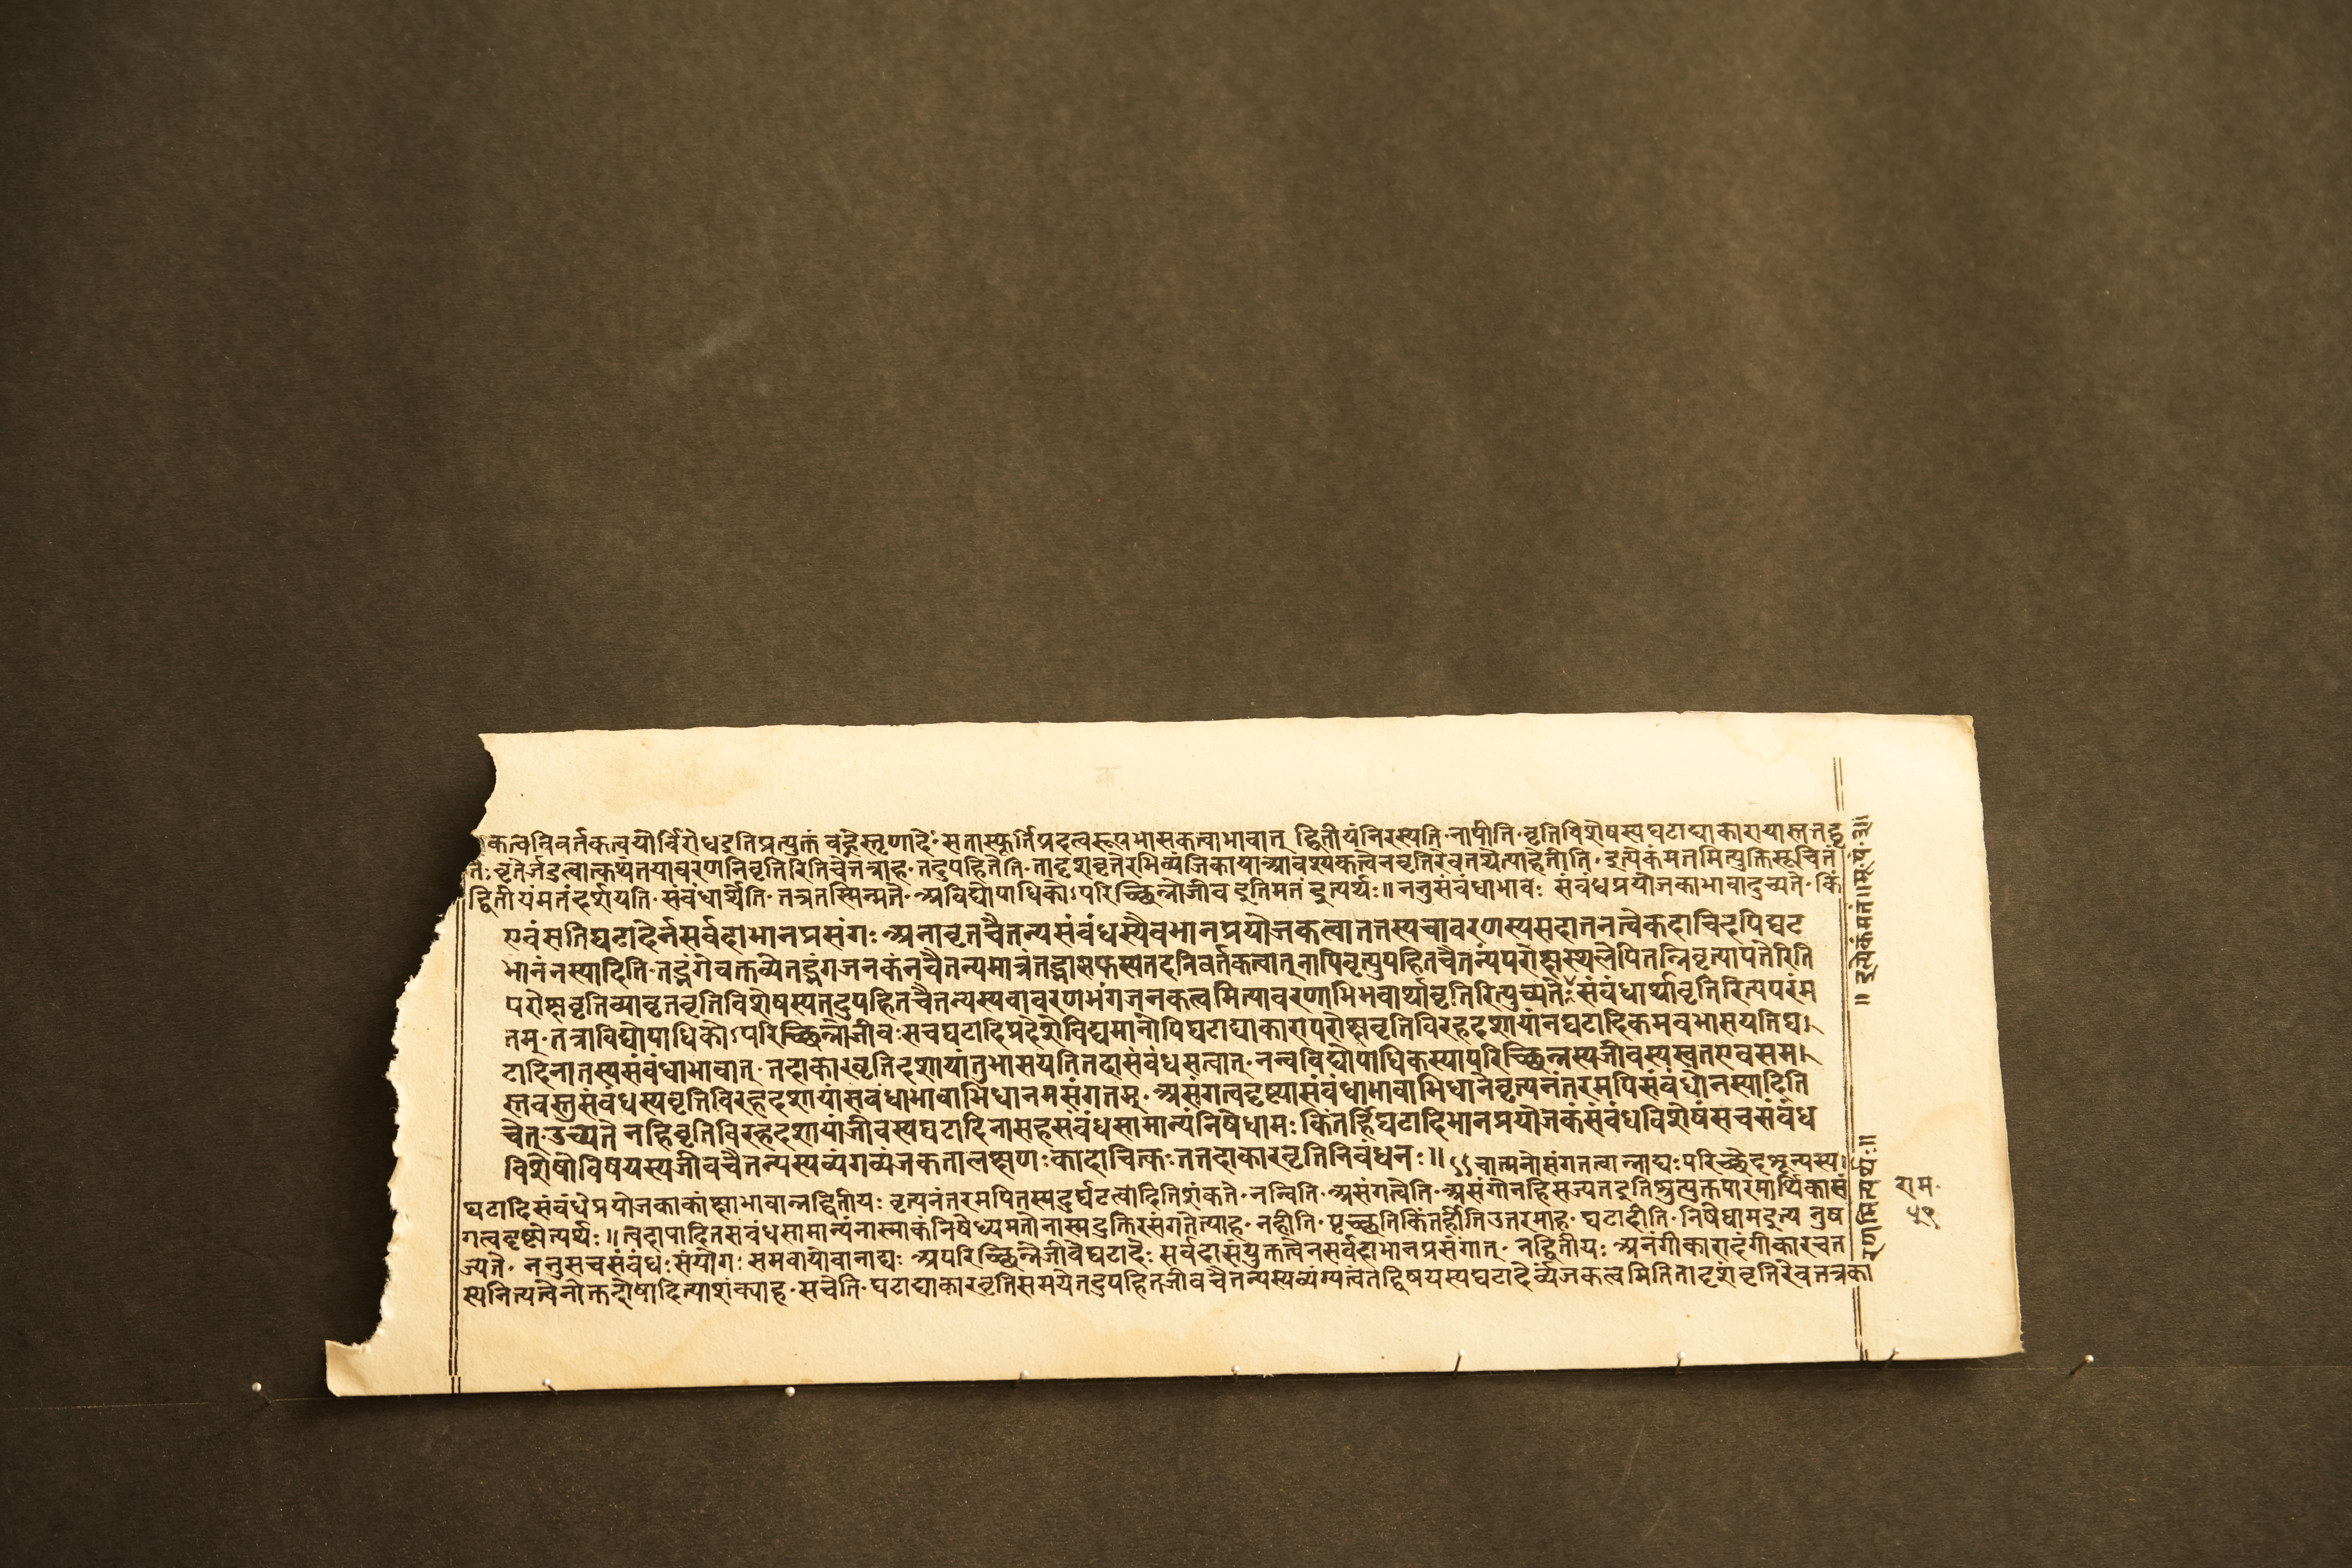 कत्वनिवर्तकत्वयोर्विरोधइतिप्रत्युक्तं वन्हेस्तृणादेः सत्तास्फूर्तिप्रदत्वरूपभासकत्वाभावात् द्वितीयंनिरस्यति नापीति वृत्तिविशेषस्यघटाद्याकारायास्तत्तद्वृ
त्तेः वृत्तेर्जडत्वात्कथंतयावरणनिवृत्तिरितिचेत्तत्राह तदुपहितेति तादृशवृत्तेरभिव्यंजिकायाआवश्यकत्वेनवृत्तिरेवतथेत्याहेतीति इत्येकंमतमित्युक्तिसूचितं
द्वितीयंमतंदर्शयति संबंधार्थेति तत्रतस्मिन्मते अविद्योपाधिकोऽपरिच्छिन्नोजीव इतिमतं इत्यर्थः॥ ननुसंबंधाभावः संबंधप्रयोजकाभावादुच्यते किं
एवंसतिघटादेर्नसर्वदाभानप्रसंगः अनावृतचैतन्यसंबंधस्यैवभानप्रयोजकत्वात्तस्यचावरणस्यसदातनत्वेकदाचिदपिघट
भानंनस्यादिति तद्भंगेवक्तव्येतद्भंगजनकंनचैतन्यमात्रंतद्भासकस्यतदनिवर्तकत्वात् नापिवृत्युपहितचैतन्यंपरोक्षस्थलेपितन्निवृत्यापत्तेरिति
परोक्षवृत्तिव्यावृत्तवृत्तिविशेषस्यतदुपहितचैतन्यस्यवावरणभंगजनकत्वमित्यावरणाभिभवार्थावृत्तिरित्युच्यते संबंधार्थावृत्तिरित्यपरंम
तम् तत्राविद्योपाधिकोऽपरिच्छिन्नोजीवः सचघटादिप्रदेशेविद्यमानोपिघटाद्याकारापरोक्षवृत्तिविरहदशायांनघटादिकमवभासयतिघ
टादिनातस्यसंबंधाभावात् तदाकारवृत्तिदशायांतुभासयतितदासंबंधसत्वात् नन्वविद्योपाधिकस्यापरिच्छिन्नस्यजीवस्यस्वतएवसम
स्तवस्तुसंबंधस्यवृत्तिविरहदशायांसंबंधाभावाभिधानमसंगतम् असंगत्वदृष्ट्यासंबंधाभावाभिधानेवृत्यनंतरमपिसंबंधोनस्यादिति
चेत् उच्यते नहिवृत्तिविरहदशायांजीवस्यघटादिनासहसंबंधसामान्यंनिषेधामः किंतर्हिघटादिभानप्रयोजकंसंबंधविशेषंसचसंबंध
विशेषोविषयस्यजीवचैतन्यस्यव्यंगव्यंजकतालक्षणः कादाचित्कः तत्तदाकारवृत्तिनिबंधनः॥ चात्मनोसंगतत्वान्नाद्यः परिच्छेदशून्यस्य
घटादिसंबंधेप्रयोजकाकांक्षाभावान्नद्वितीयः वृत्यनंतरमपितस्यदुर्घटत्वादितिशंकते नन्विति असंगत्वेति असंगोनहिसज्यतइतिश्रुत्युक्तपारमार्थिकासं
गत्वदृष्ट्येत्यर्थः॥ त्वदापादितसंबंधसामान्यंनास्माकंनिषेध्यमतोनास्मदुक्तिरसंगतेत्याह नहीति पृच्छतिकिंतर्हीतिउत्तरमाह घटादीति निषेधामइत्य नुष
ज्यते ननुसचसंबंधः संयोगः समवायोवानाद्यः अपरिच्छिन्नेजीवेघटादेः सर्वदासंयुक्तत्वेनसर्वदाभानप्रसंगात् नद्वितीयः अनंगीकारादंगीकारेचत
स्यनित्यत्वेनोक्तदोषादित्याशंक्याह सचेति घटाद्याकारवृत्तिसमयेतदुपहितजीवचैतन्यस्यव्यंग्यत्वंतद्विषयस्यघटादेर्व्यंजकत्वमितितादृशंवृत्तिरेवतत्रका
राम
५९